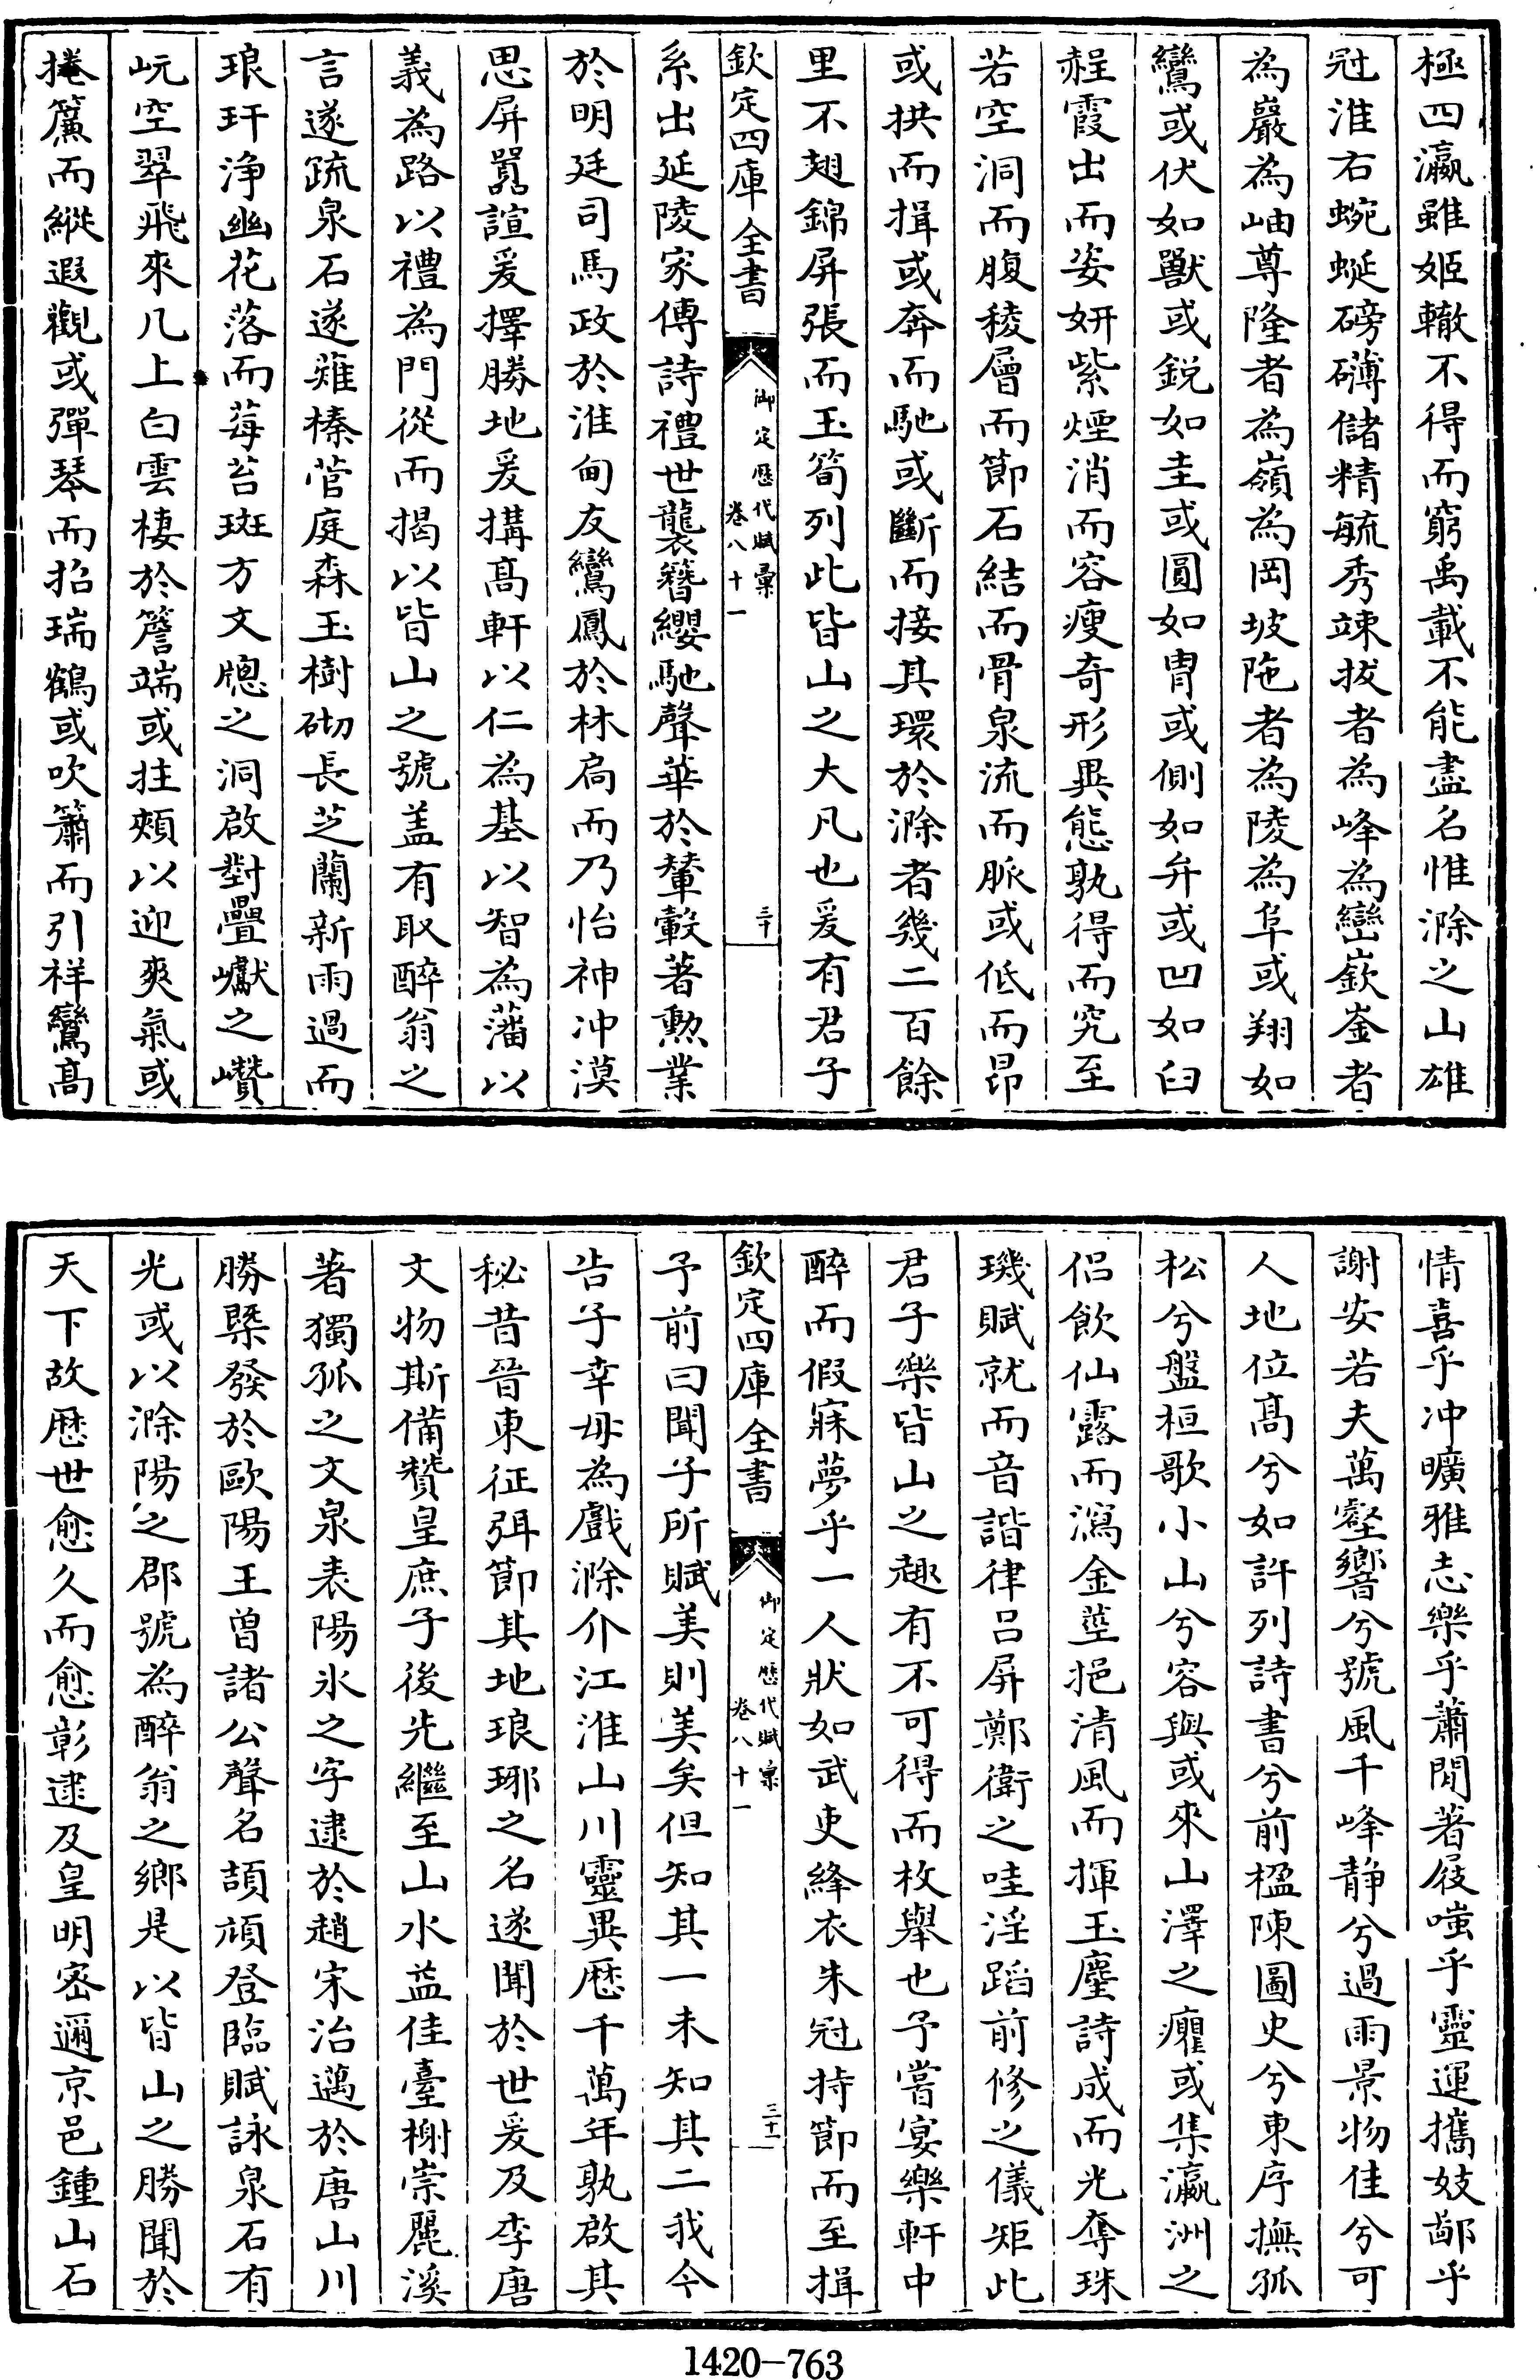 極四瀛雖姬轍不得而窮禹載不能盡名惟滁之山雄
冠淮右蜿蜒磅礴儲精毓秀竦拔者為峰為巒嶔崟者
為巖為岫尊隆者為嶺為岡坡陁者為陵為阜或翔如
鸞或伏如獸或鋭如圭或圓如胄或側如弁或凹如臼
赬霞出而姿妍紫煙消而容瘦奇形異態孰得而究至
若空洞而腹稜層而節石結而骨泉流而脈或低而昂
或拱而揖或奔而馳或斷而接其環於滁者幾二百餘
里不翅錦屏張而玉筍列此皆山之大凡也爰有君子
欽定四庫全書
御定歷代賦彙
卷八十一
三十
系出延陵家傳詩禮世襲簪纓馳聲華於輦轂著勲業
於明廷司馬政於淮甸友鸞鳳於林扃而乃怡神冲漠
思屏囂諠爰擇勝地爰搆高軒以仁為基以智為藩以
義為路以禮為門從而揭以皆山之號盖有取醉翁之
言遂疏泉石遂薙榛菅庭森玉樹砌長芝蘭新雨過而
琅玕浄幽花落而莓苔斑方文牕之洞啟對疊巘之巑
岏空翠飛來几上白雲棲於簷端或拄頰以迎爽氣或
捲簾而縱遐觀或彈琴而招瑞鶴或吹簫而引祥鸞高
情喜乎冲曠雅志樂乎蕭閒著屐嗤乎靈運攜妓鄙乎
謝安若夫萬壑響兮號風千峰静兮過雨景物佳兮可
人地位高兮如許列詩書兮前楹陳圖史兮東序撫孤
松兮盤桓歌小山兮容與或來山澤之癯或集瀛洲之
侣飲仙露而瀉金莖挹清風而揮玉麈詩成而光奪珠
璣賦就而音諧律吕屏鄭衛之哇淫蹈前修之儀矩此
君子樂皆山之趣有不可得而枚舉也予嘗宴樂軒中
醉而假寐夢乎一人狀如武吏絳衣朱冠持節而至揖
欽定四庫全書
御定歷代賦彙
卷八十一
三十一
予前曰聞子所賦美則美矣但知其一未知其二我今
告子幸毋為戲滁介江淮山川靈異歷千萬年孰啟其
秘昔晉東征弭節其地琅琊之名遂聞於世爰及李唐
文物斯備贊皇庶子後先繼至山水益佳臺榭崇麗溪
著獨孤之文泉表陽氷之字逮於趙宋治邁於唐山川
勝槩發於歐陽王曾諸公聲名頡頏登臨賦詠泉石有
光或以滁陽之郡號為醉翁之鄉是以皆山之勝聞於
天下故歷世愈久而愈彰逮及皇明密邇京邑鍾山石
1420-763